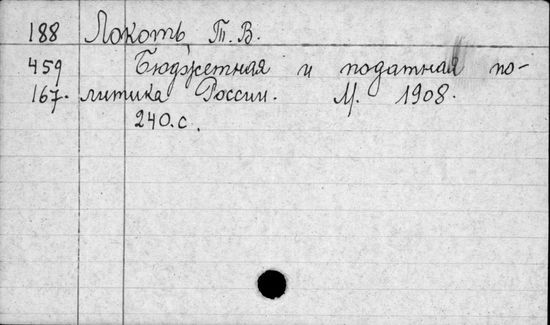 188 Локоть Т. В.
459 Бюджетная и податная по-
167. литика России. М. 1908.
240.с.